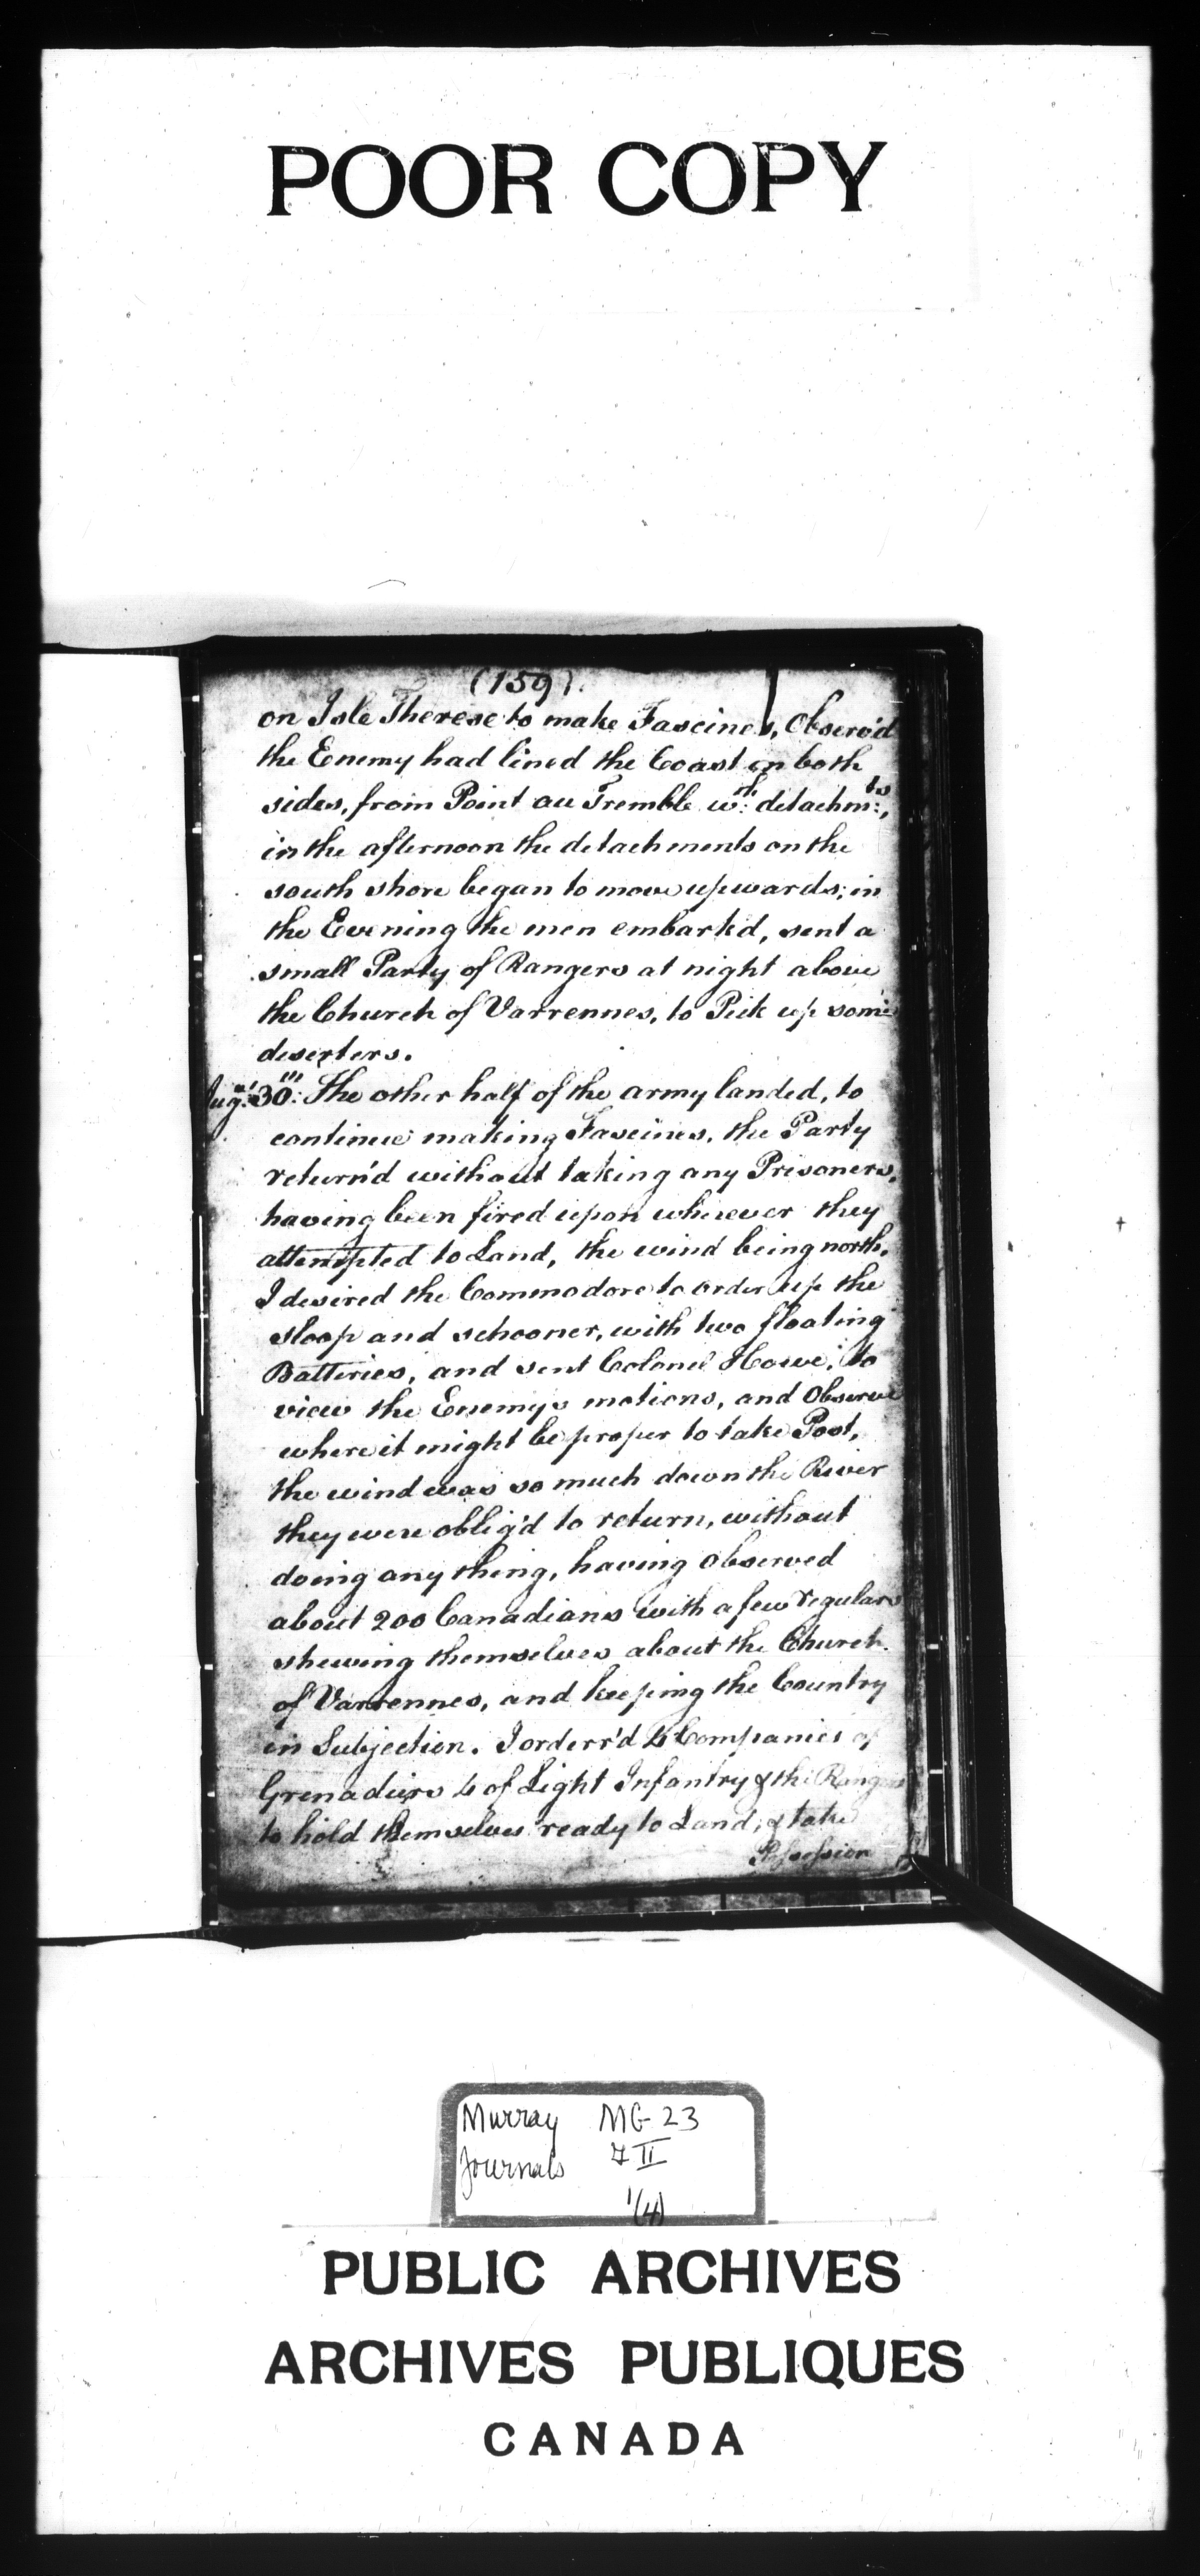 POOR COPY
(159)
on Isle Therese to make Fascines, Observ'd
the Enemy had lined the Coast on both
sides, from Point au Tremble wth: detachmts:,
in the afternoon the detachments on the
south shore began to move upwards; in
the Evening the men embark'd, sent a
small Party of Rangers at night above
the Church of Varrennes, to Pick up some
deserters.
Augt: 30th: The other half of the army landed, to
continue making Fascines, the Party
return'd without taking any Prisoners,
having been fired upon wherever they
attempted to Land, the wind being north,
I desired the Commodore to order up the
sloop and schooner, with two floating
Batteries, and sent Colonel Howe, to
view the Enemys motions, and Observe
where it might be proper to take Post,
the wind was so much down the River
they were oblig'd to return, without
doing any thing, having observed
about 200 Canadians with a few regulars
shewing themselves about the Church
of Varrennes, and keeping the Country
in Subjection. I orderr'd 4 Companies of
Grenadiers 4 of Light Infantry & the Rangers
to hold themselves ready to Land, & take
Possession
Murray MG 23
Journals II
1(4)
PUBLIC ARCHIVES
ARCHIVES PUBLIQUES
CANADA